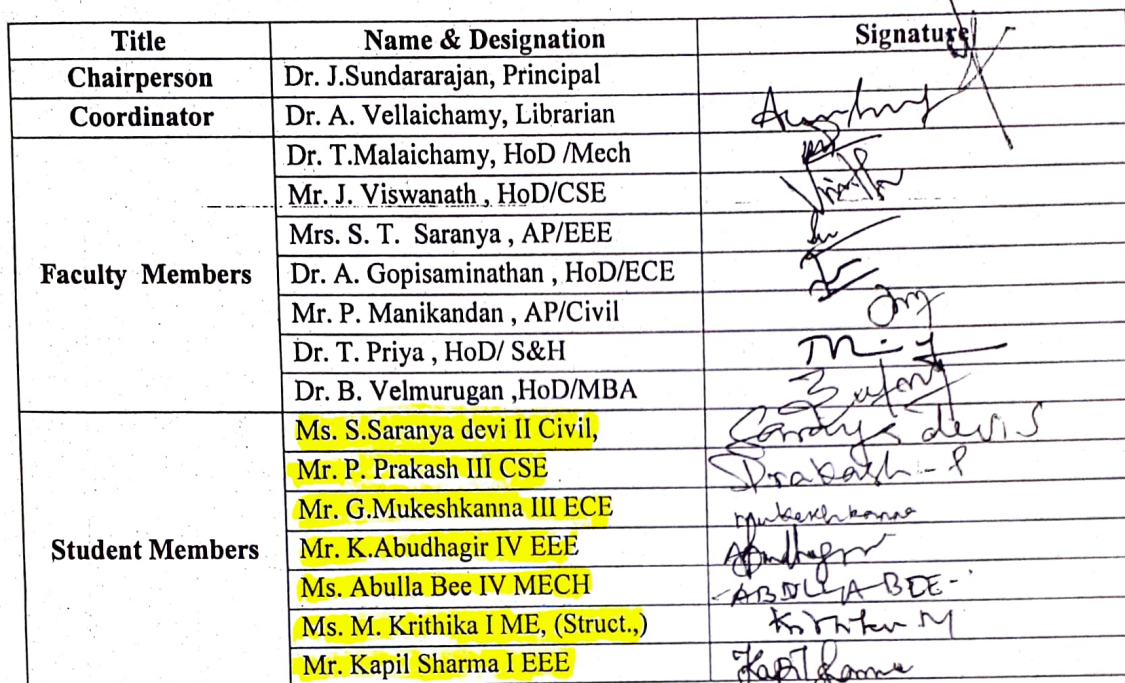 Title Name & Designation Signature
Chairperson Dr. J.Sundararajan, Principal
Coordinator Dr. A. Vellaichamy, Librarian
Faculty Members
Dr. T.Malaichamy, HoD /Mech
Mr. J. Viswanath , HoD/CSE
Mrs. S. T. Saranya , AP/EEE
Dr. A. Gopisaminathan , HoD/ECE
Mr. P. Manikandan , AP/Civil
Dr. T. Priya , HoD/ S&H
Dr. B. Velmurugan ,HoD/MBA
Student Members
Ms. S.Saranya devi II Civil, devi S
Mr. P. Prakash III CSE Prakash - P
Mr. G.Mukeshkanna III ECE mukeshkanna
Mr. K.Abudhagir IV EEE
Ms. Abulla Bee IV MECH -ABULLA BEE-
Ms. M. Krithika I ME, (Struct.,) Krithika M
Mr. Kapil Sharma I EEE Kapil Sharma